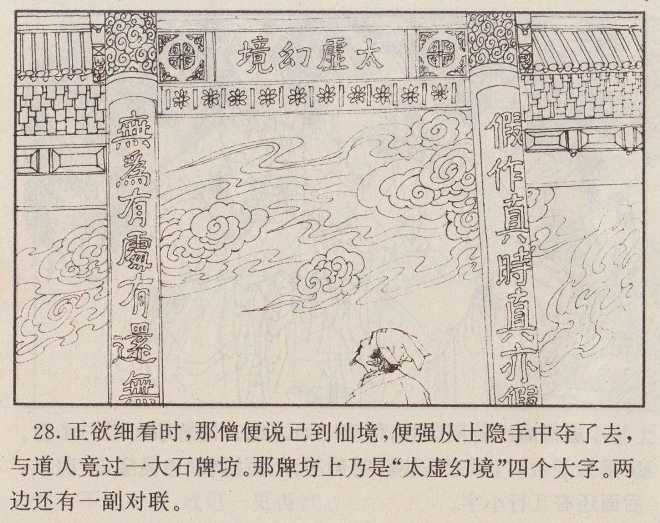 太虛幻境
假作真時真亦假
無為有處有還無
28. 正欲细看时，那僧便说已到仙境，便强从士隐手中夺了去，
与道人竟过一大石牌坊。那牌坊上乃是“太虚幻境”四个大字。两
边还有一副对联。